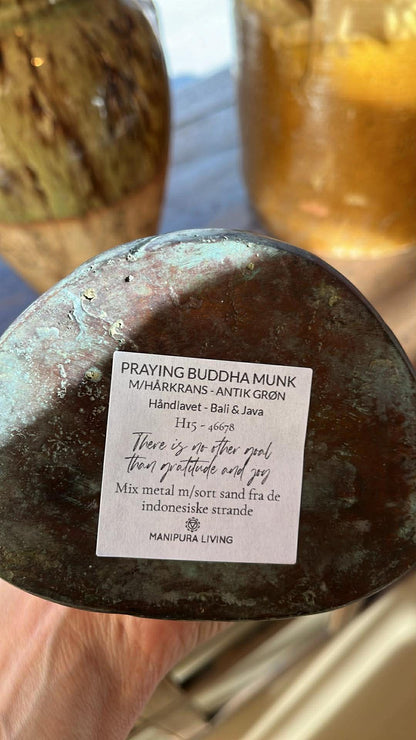 PRAYING BUDDHA MUNK
M/HÅRKRANS - ANTIK GRØN
Håndlavet - Bali & Java
H15 - 46678
There is no other goal
than gratitude and joy
Mix metal m/sort sand fra de
indonesiske strande
MANIPURA LIVING